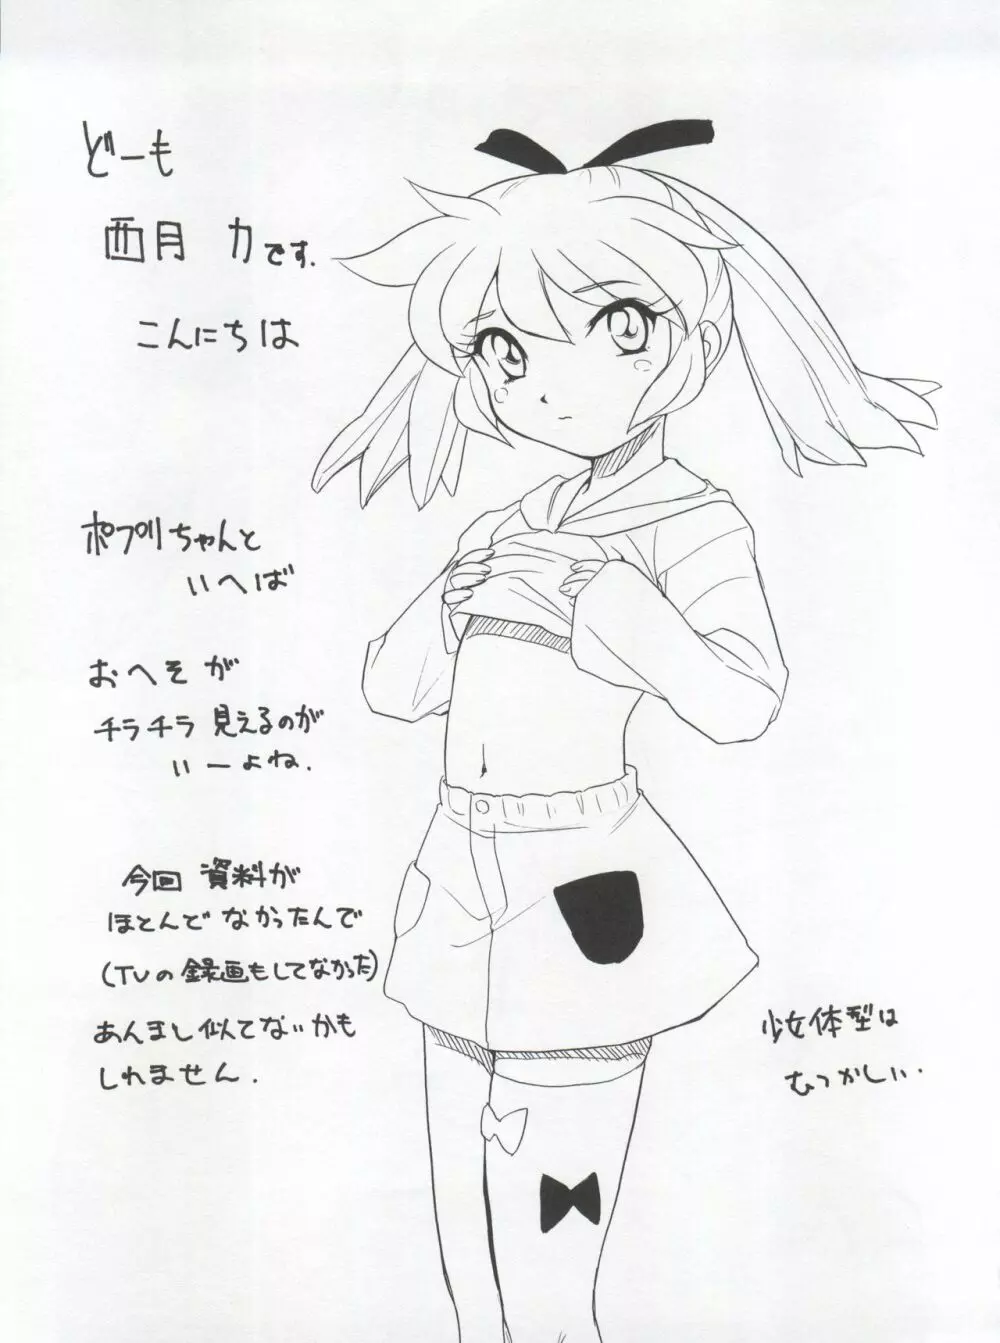 どーも
西月 力です.
こんにちは
ポプリちゃんと
いへば
おへそが
チラチラ見えるのが
いーよね.
今回 資料が
ほとんどなかったんで
(TVの録画もしてなかった)
あんまし似てないかも
しれません.
少女体型は
むつかしい.